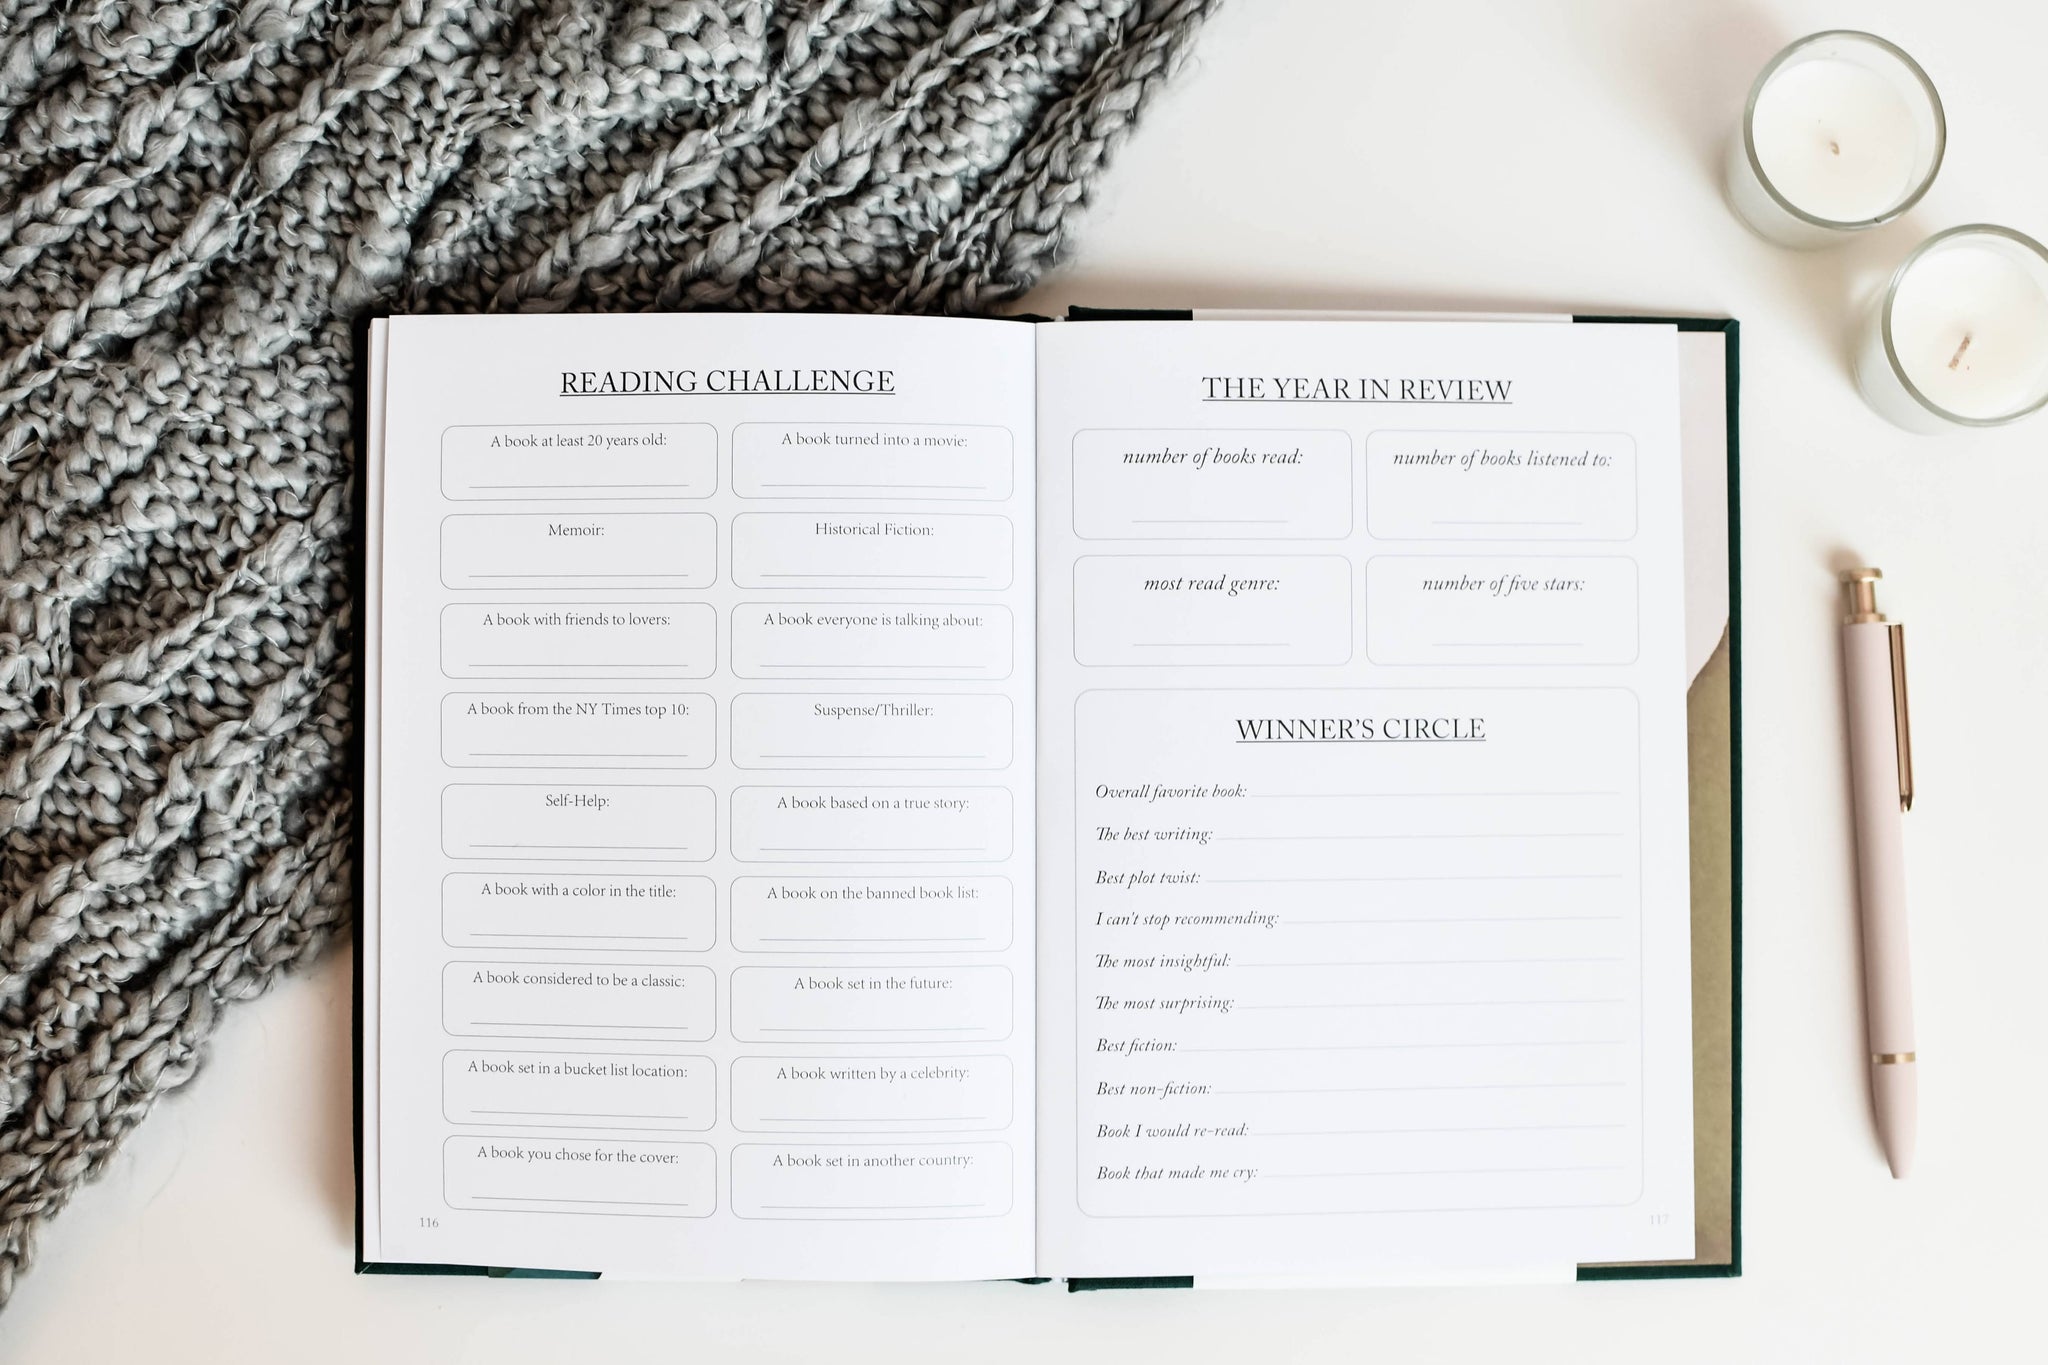 READING CHALLENGE
A book at least 20 years old:
A book turned into a movie:
Memoir:
Historical Fiction:
A book with friends to lovers:
A book everyone is talking about:
A book from the NY Times top 10:
Suspense/Thriller:
Self-Help:
A book based on a true story:
A book with a color in the title:
A book on the banned book list:
A book considered to be a classic:
A book set in the future:
A book set in a bucket list location:
A book written by a celebrity:
A book you chose for the cover:
A book set in another country:
116
THE YEAR IN REVIEW
number of books read:
number of books listened to:
most read genre:
number of five stars:
WINNER'S CIRCLE
Overall favorite book:
The best writing:
Best plot twist:
I can't stop recommending:
The most insightful:
The most surprising:
Best fiction:
Best non-fiction:
Book I would re-read:
Book that made me cry:
117